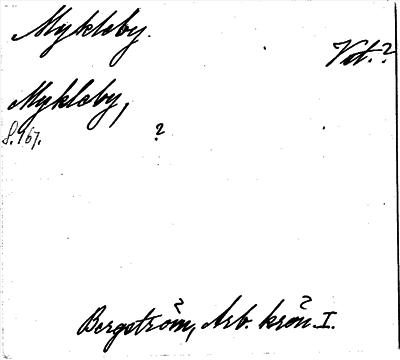 Mykleby.
Vit.?
Mykleby,
S. 167. ?
Bergström, Arb. krön. I.